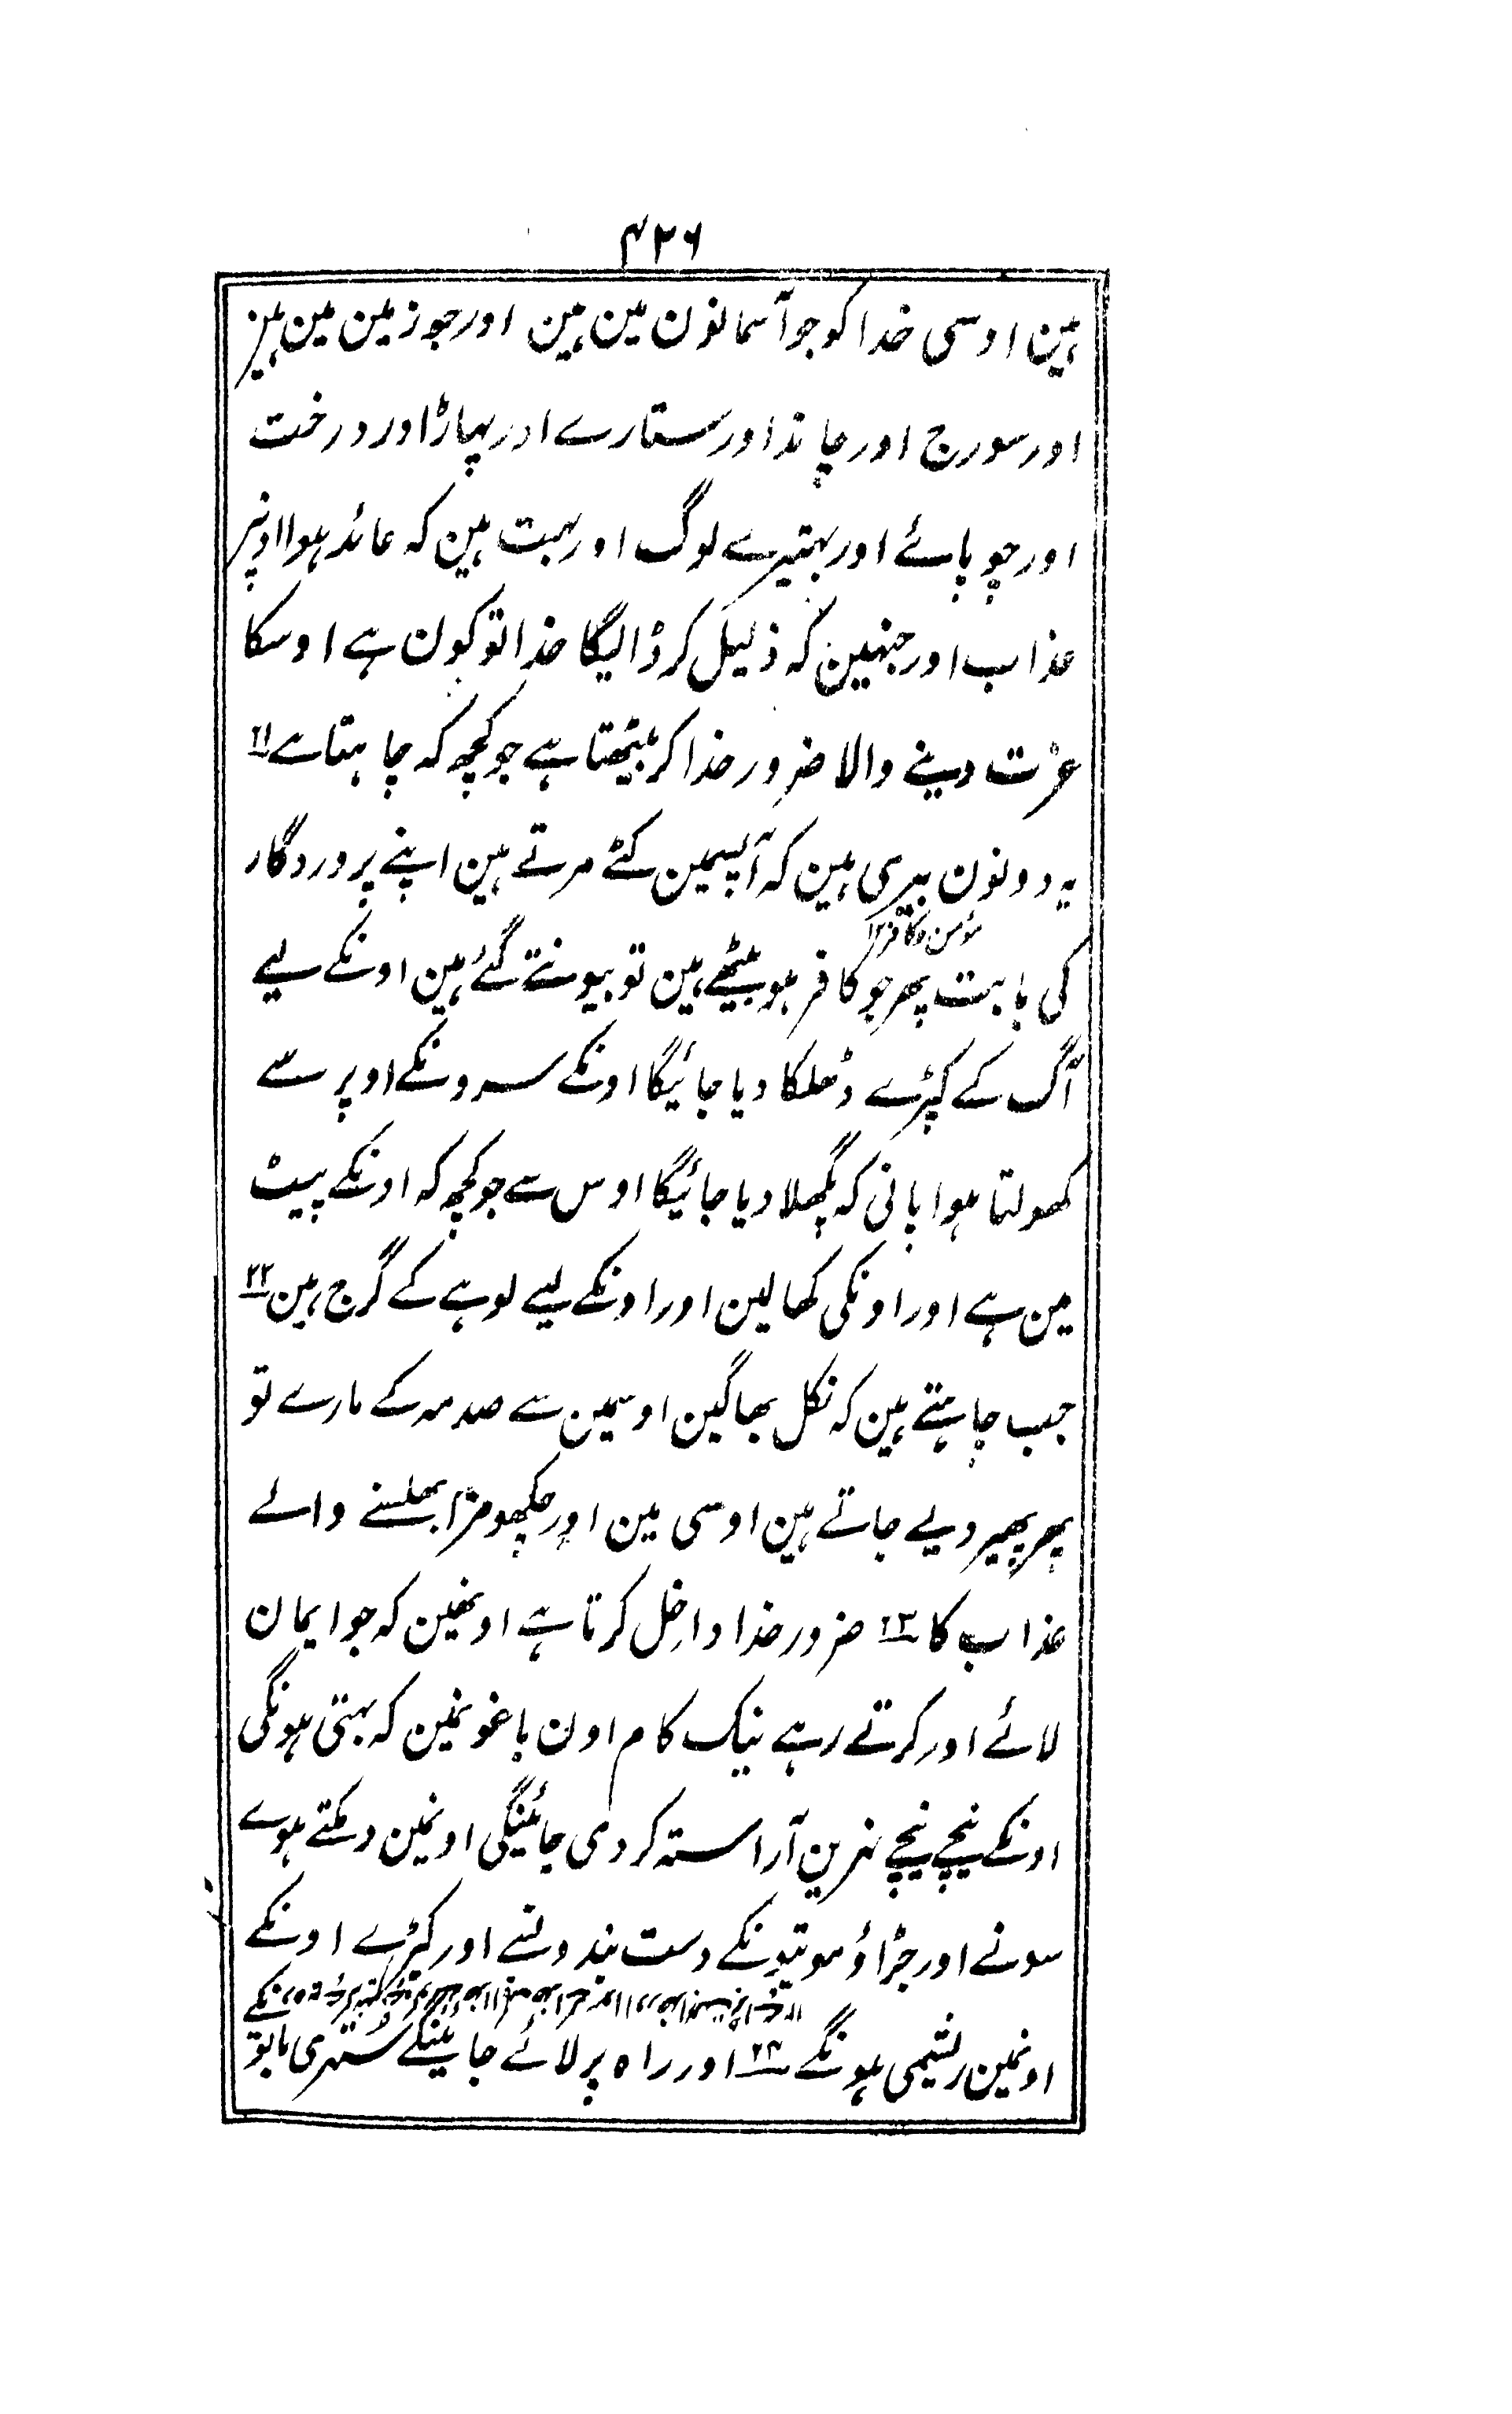 ۴۲۶
ہین اوسی خدا کو جو آسمانون مین ہین اور جو زمین مین ہین
اور سورج اور چاند اور ستارے اور پہاڑ اور درخت
اور چوپائے اور بہتیرے لوگ اور بہت ہین کہ عائد ہوا اونپر
عذاب اور جنہین کہ ذلیل کر ڈالیگا خدا تو کون ہے اوسکا
عزت دینے والا ضرور خدا کر بیٹھتا ہے جو کچھ کہ چاہتا ہے ۲۱
یہ دونون بیری ہین کہ آپسمین کٹے مرتے ہین اپنے پروردگار
مؤمن وکافر ۱۲
کی بابت پھر جو کافر ہو بیٹھے ہین تو بیونتے گئے ہین اونکے لیے
آگ کے کپڑے ڈھلکا دیا جائیگا اونکے سرونکے اوپر سے
کھولتا ہوا پانی کہ پگھلا دیا جائیگا اوس سے جو کچھ کہ اونکے پیٹ
مین ہے اور اونکی کھالین اور اونکے لیے لوہے کے گرج ہین ۲۲
جب چاہتے ہین کہ نکل بھاگین اوسمین سے صدمہ کے مارے تو
پھر پھیر دیے جاتے ہین اوسی مین اور چکھو مزا جھلسنے والے
عذاب کا ۲۳ ضرور خدا داخل کرتا ہے اونھین کہ جو ایمان
لائے اور کرتے رہے نیک کام اون باغونمین کہ بہتی ہونگی
اونکے نیچے نیچے نہرین آراستہ کر دی جائینگی اونمین دمکتے ہوے
سونے اور جڑاؤ موتیونکے دست بندونسے اور کپڑے اونکے
اونمین ریشمی ہونگے ۲۴ اور راہ پر لائے جاینگے ستھری باتونکے